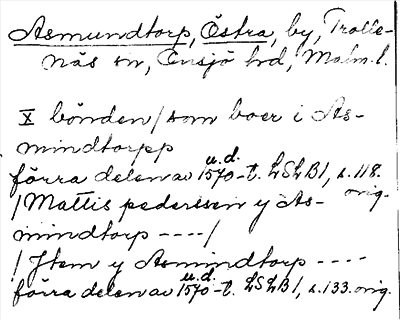 Asmundtorp, Östra, by, Trolle-
näs sn, Onsjö hd, Malm. l.
X bönden/som boer i As-
mindtorpp
förra delen av u.d. 1570-t. LSLB1, s. 118. orig.
/Mattis pederssen y As-
mindtorp ----/
/Jtem y Asmindtorp ----
förra delen av u.d. 1570-t. LSLB1, s. 133. orig.